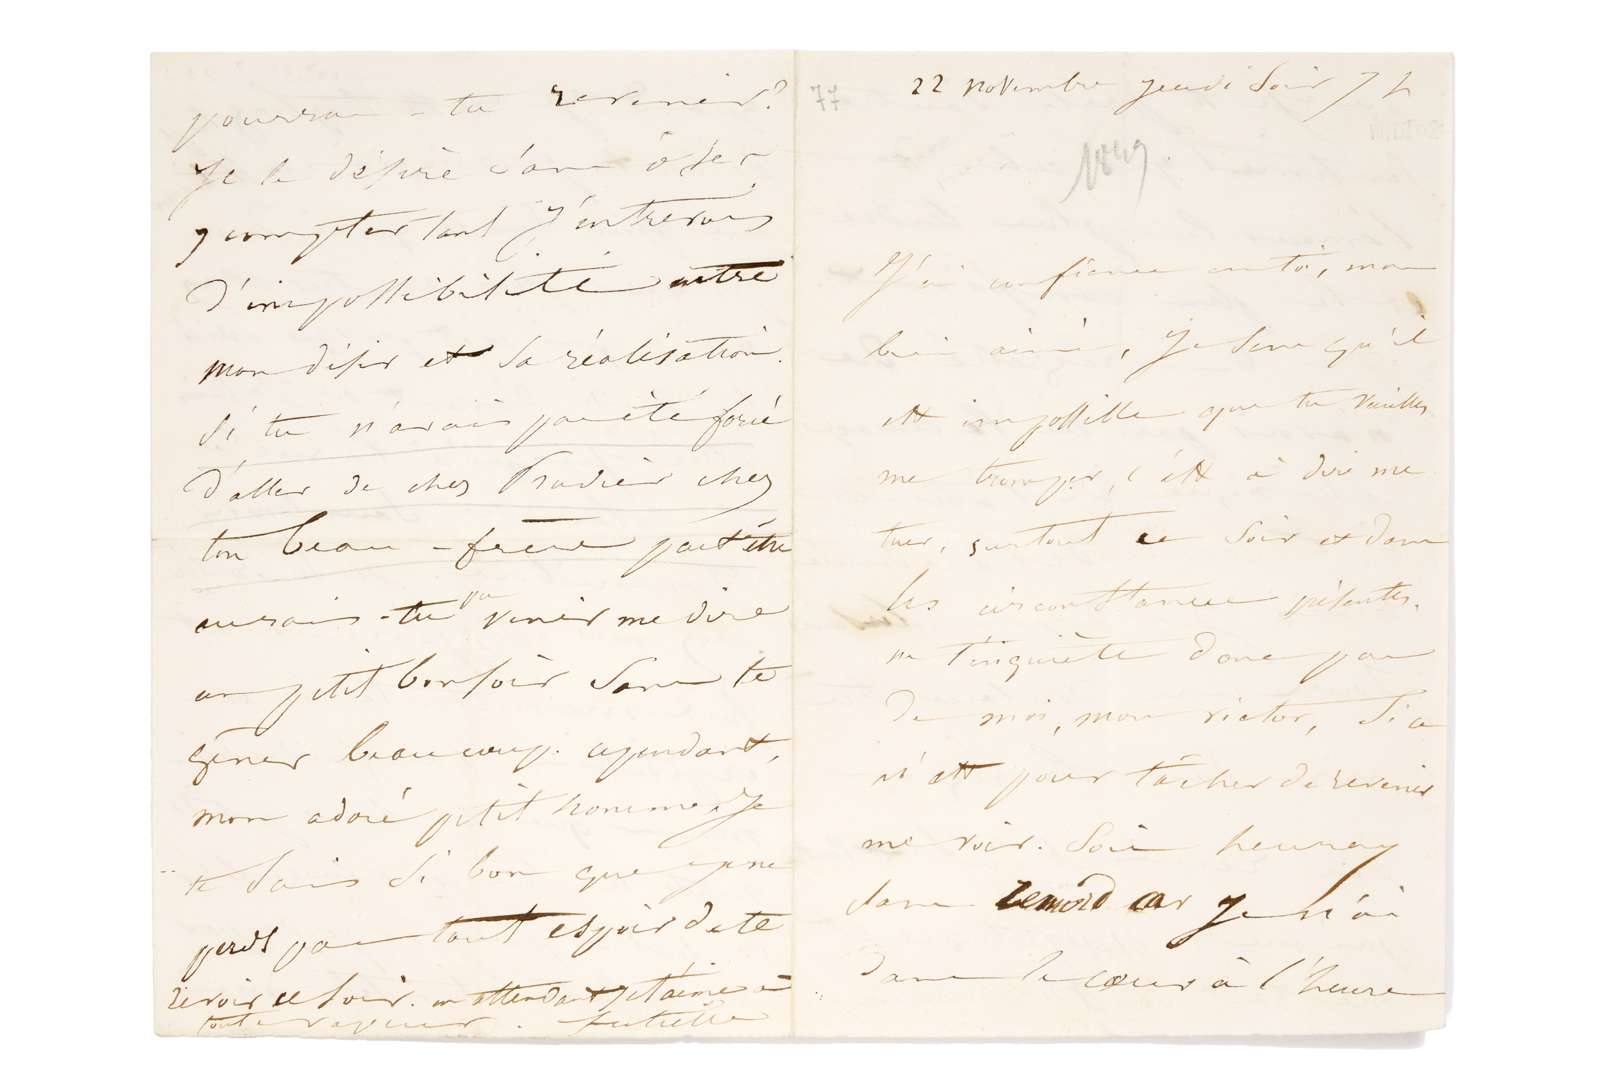 77
22 novembre jeudi soir 7 h
1849
J'ai confiance en toi, mon
bien aimé, je sens qu'il
est impossible que tu veuilles
me tromper, c'est à dire me
tuer, surtout ce soir et dans
les circonstances présentes.
ne t'inquiète donc pas
de moi, mon victor, si ce
n'est pour tâcher de revenir
me voir. Sois heureux
sans remord car je n'ai
dans le cœur à l'heure
pourras-tu revenir?
Je le désire sans oser
y compter tant j'entrevois
d'impossibilité entre
mon désir et sa réalisation.
Si tu n'avais pas été forcé
d'aller de chez Pradier chez
ton beau-frère peut être
aurais-tu pu venir me dire
un petit bonsoir sans te
gêner beaucoup. cependant,
mon adoré petit homme, je
te sais si bon que je ne
perds pas tout espoir de te
revoir ce soir. en attendant je t'aime à
toute vapeur. Juliette